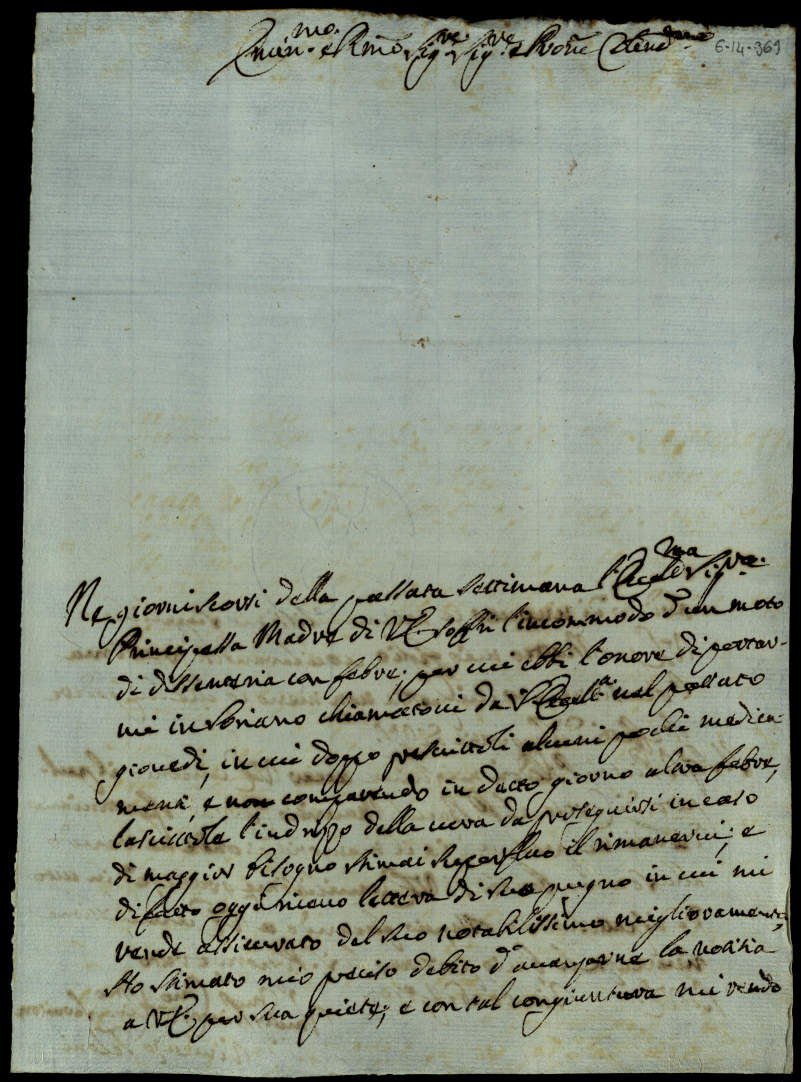 Emin.mo e Rmo Sig.re Sig.re e Prone Colend.mo
6-14-369
Ne giorni scorsi della passata settimana l'Eccell.ma Sig.ra
Principessa Madre di V.E. soffrì l'incommodo d'un moto
di dissenteria con febre; per cui ebbi l'onore di portar-
mi in Soriano chiamatovi da S. Eccell.a nel passato
giovedì, in cui doppo prescrittoli alcuni pochi medica-
menti, e non comparendo in detto giorno altra febre,
lasciatole l'indrizzo della cura da proseguirsi in caso
di maggior bisogno stimai superfluo il rimanervi; e
di fatto oggi ricevo lettera di suo pugno in cui mi
rende assicurato del suo notabilissimo miglioramento,
Ho stimato mio preciso debito d'avanzarne la notizia
a V.E. per sua quiete; e con tal congiuntura mi rendo